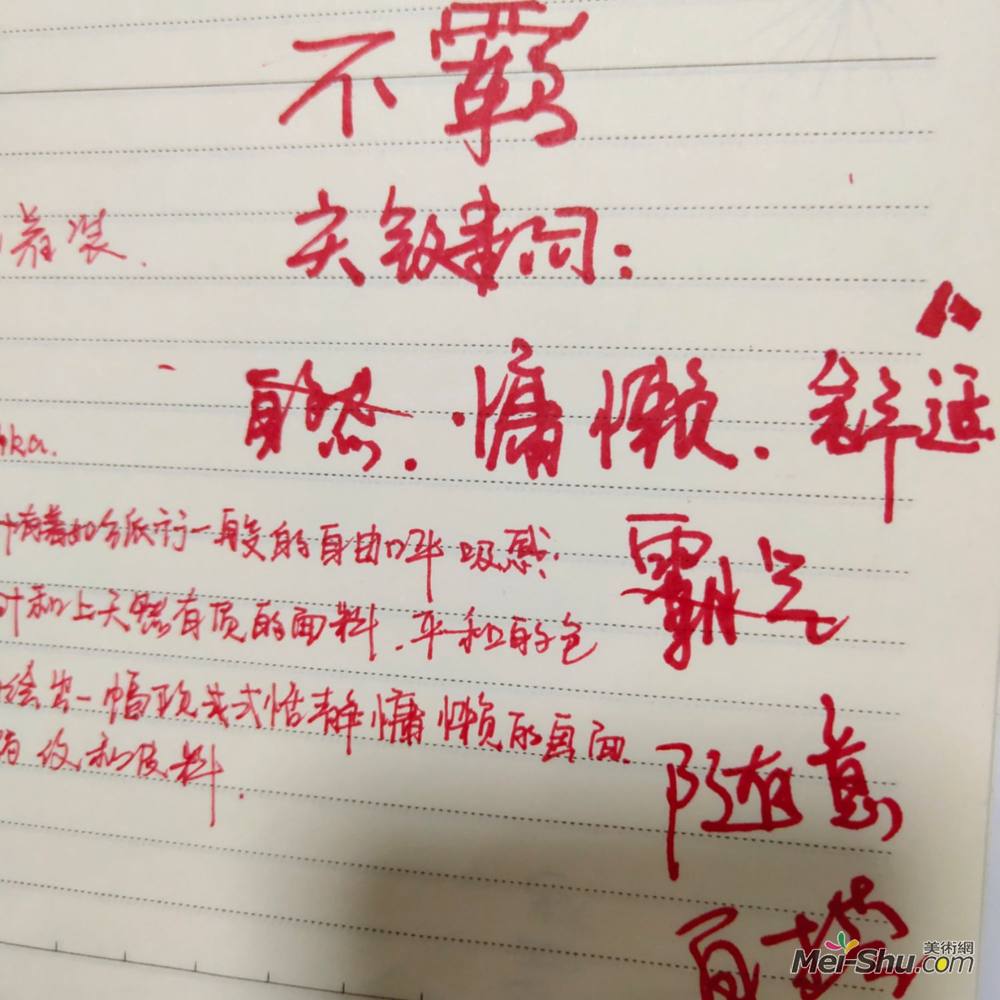 不羁
着装.
关键词:
自然.慵懒.舒适
ka.
有着如令派行一般的自由呼吸感;
计和上天然有质的面料.平和的色
霸气
绘出一幅现代式恬静慵懒的画面.
随意
纹和皮料.
美術網
Mei-Shu.com